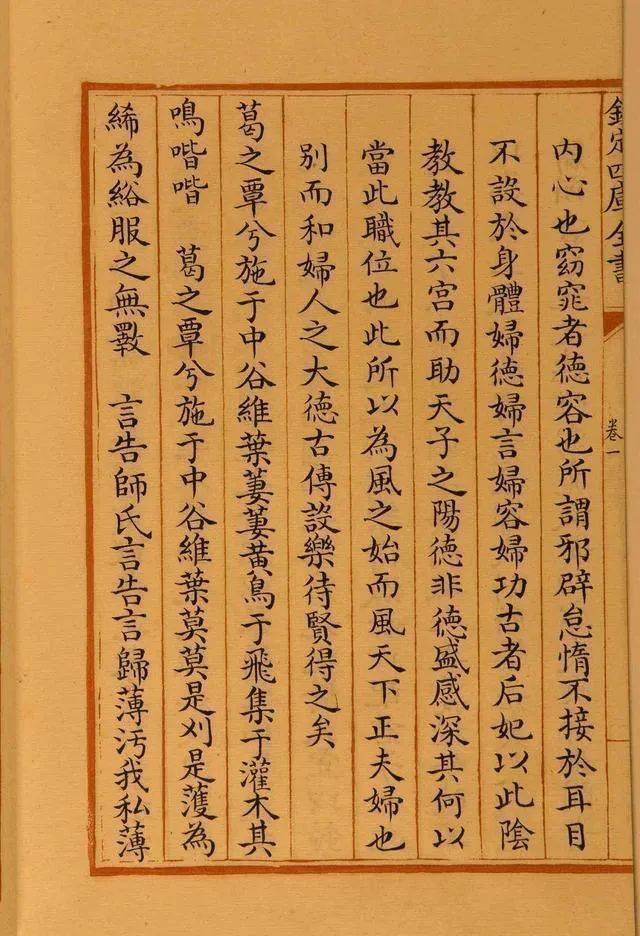 欽定四庫全書
卷一
内心也窈窕者德容也所謂邪辟怠惰不接於耳目
不設於身體婦德婦言婦容婦功古者后妃以此陰
教教其六宫而助天子之陽德非德盛感深其何以
當此職位也此所以為風之始而風天下正夫婦也
别而和婦人之大德古傳設樂待賢得之矣
葛之覃兮施于中谷維葉萋萋黄鳥于飛集于灌木其
鳴喈喈　葛之覃兮施于中谷維葉莫莫是刈是濩為
絺為綌服之無斁　言告師氏言告言歸薄汚我私薄